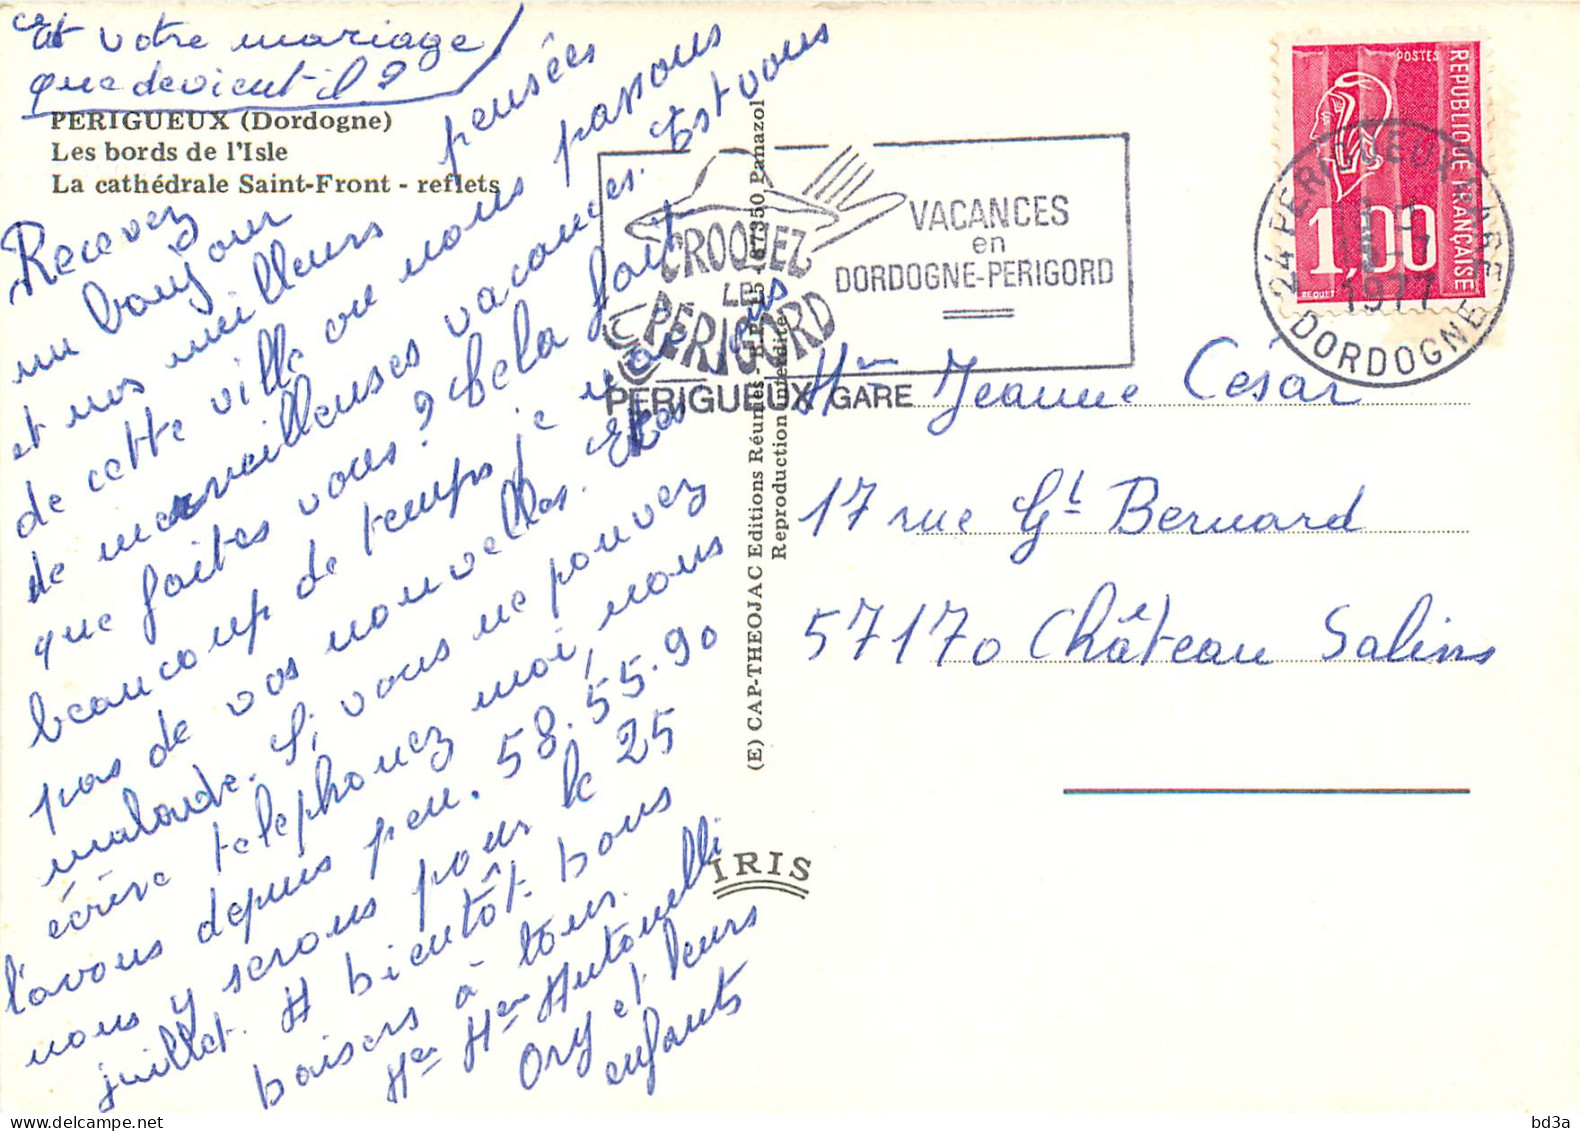 Et votre mariage
que devient-il ?
PERIGUEUX (Dordogne)
Les bords de l'Isle
La cathédrale Saint-Front - reflets
Recevez
un bonjour
et nos meilleurs pensées
de cette ville ou nous passons
de merveilleuses vacances. Est vous
que faites vous ? Cela fait
beaucoup de temps je n'ai pas
pas de vos nouvelles. Etes
malade. Si vous ne pouvez
écrire telephonez moi, nous
l'avons depuis peu. 58.55.90
nous y serons pour le 25
juillet. A bientôt. bons
baisers à tous.
Mr Mme Antonelli
Ory et leurs
enfants
(E) CAP-THEOJAC Editions Réunies - B.P. 15 - 87350 Panazol
Reproduction interdite
IRIS
CROQUEZ
LE
PÉRIGORD
VACANCES
en
DORDOGNE-PERIGORD
PERIGUEUX GARE
POSTES
REPUBLIQUE FRANÇAISE
1,00
BEQUET
24 PERIGUEUX GARE
1977
DORDOGNE
Mme Jeanne César
17 rue St Bernard
57170 Château Salins
bd3a